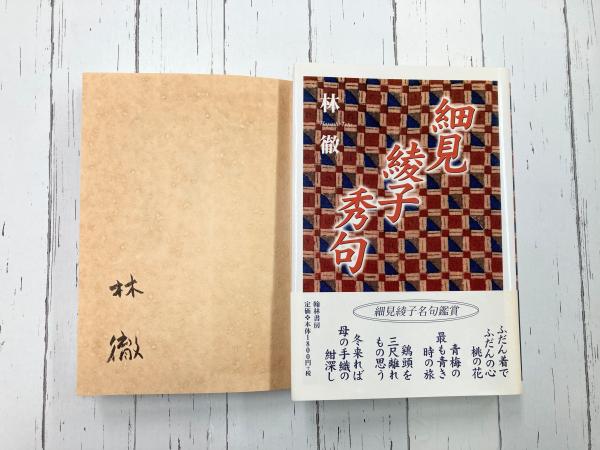 林
徹
林 徹
細見
綾子
秀句
細見綾子名句鑑賞
ふだん着で
ふだんの心
桃の花
青梅の
最も青き
時の旅
鶏頭を
三尺離れ
もの思う
冬来れば
母の手織の
紺深し
翰林書房
定価❖本体1800円+税